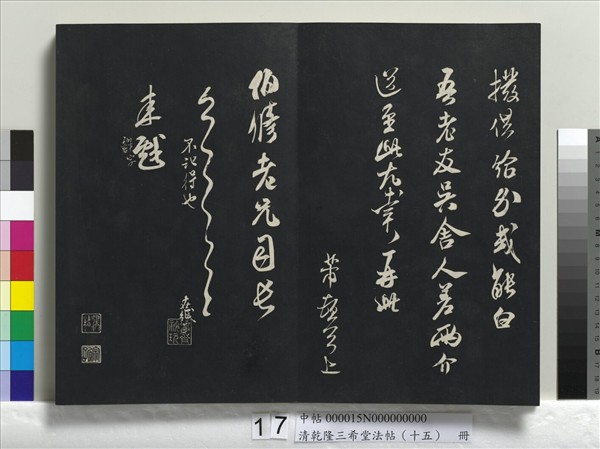 撥供給分或能白
吾老友吳舍人差兩介
送至此尤幸再此
芾頓首上
伯修老兄司長
不訛得也
來戲
17
中帖 000015N000000000
清乾隆三希堂法帖（十五） 冊